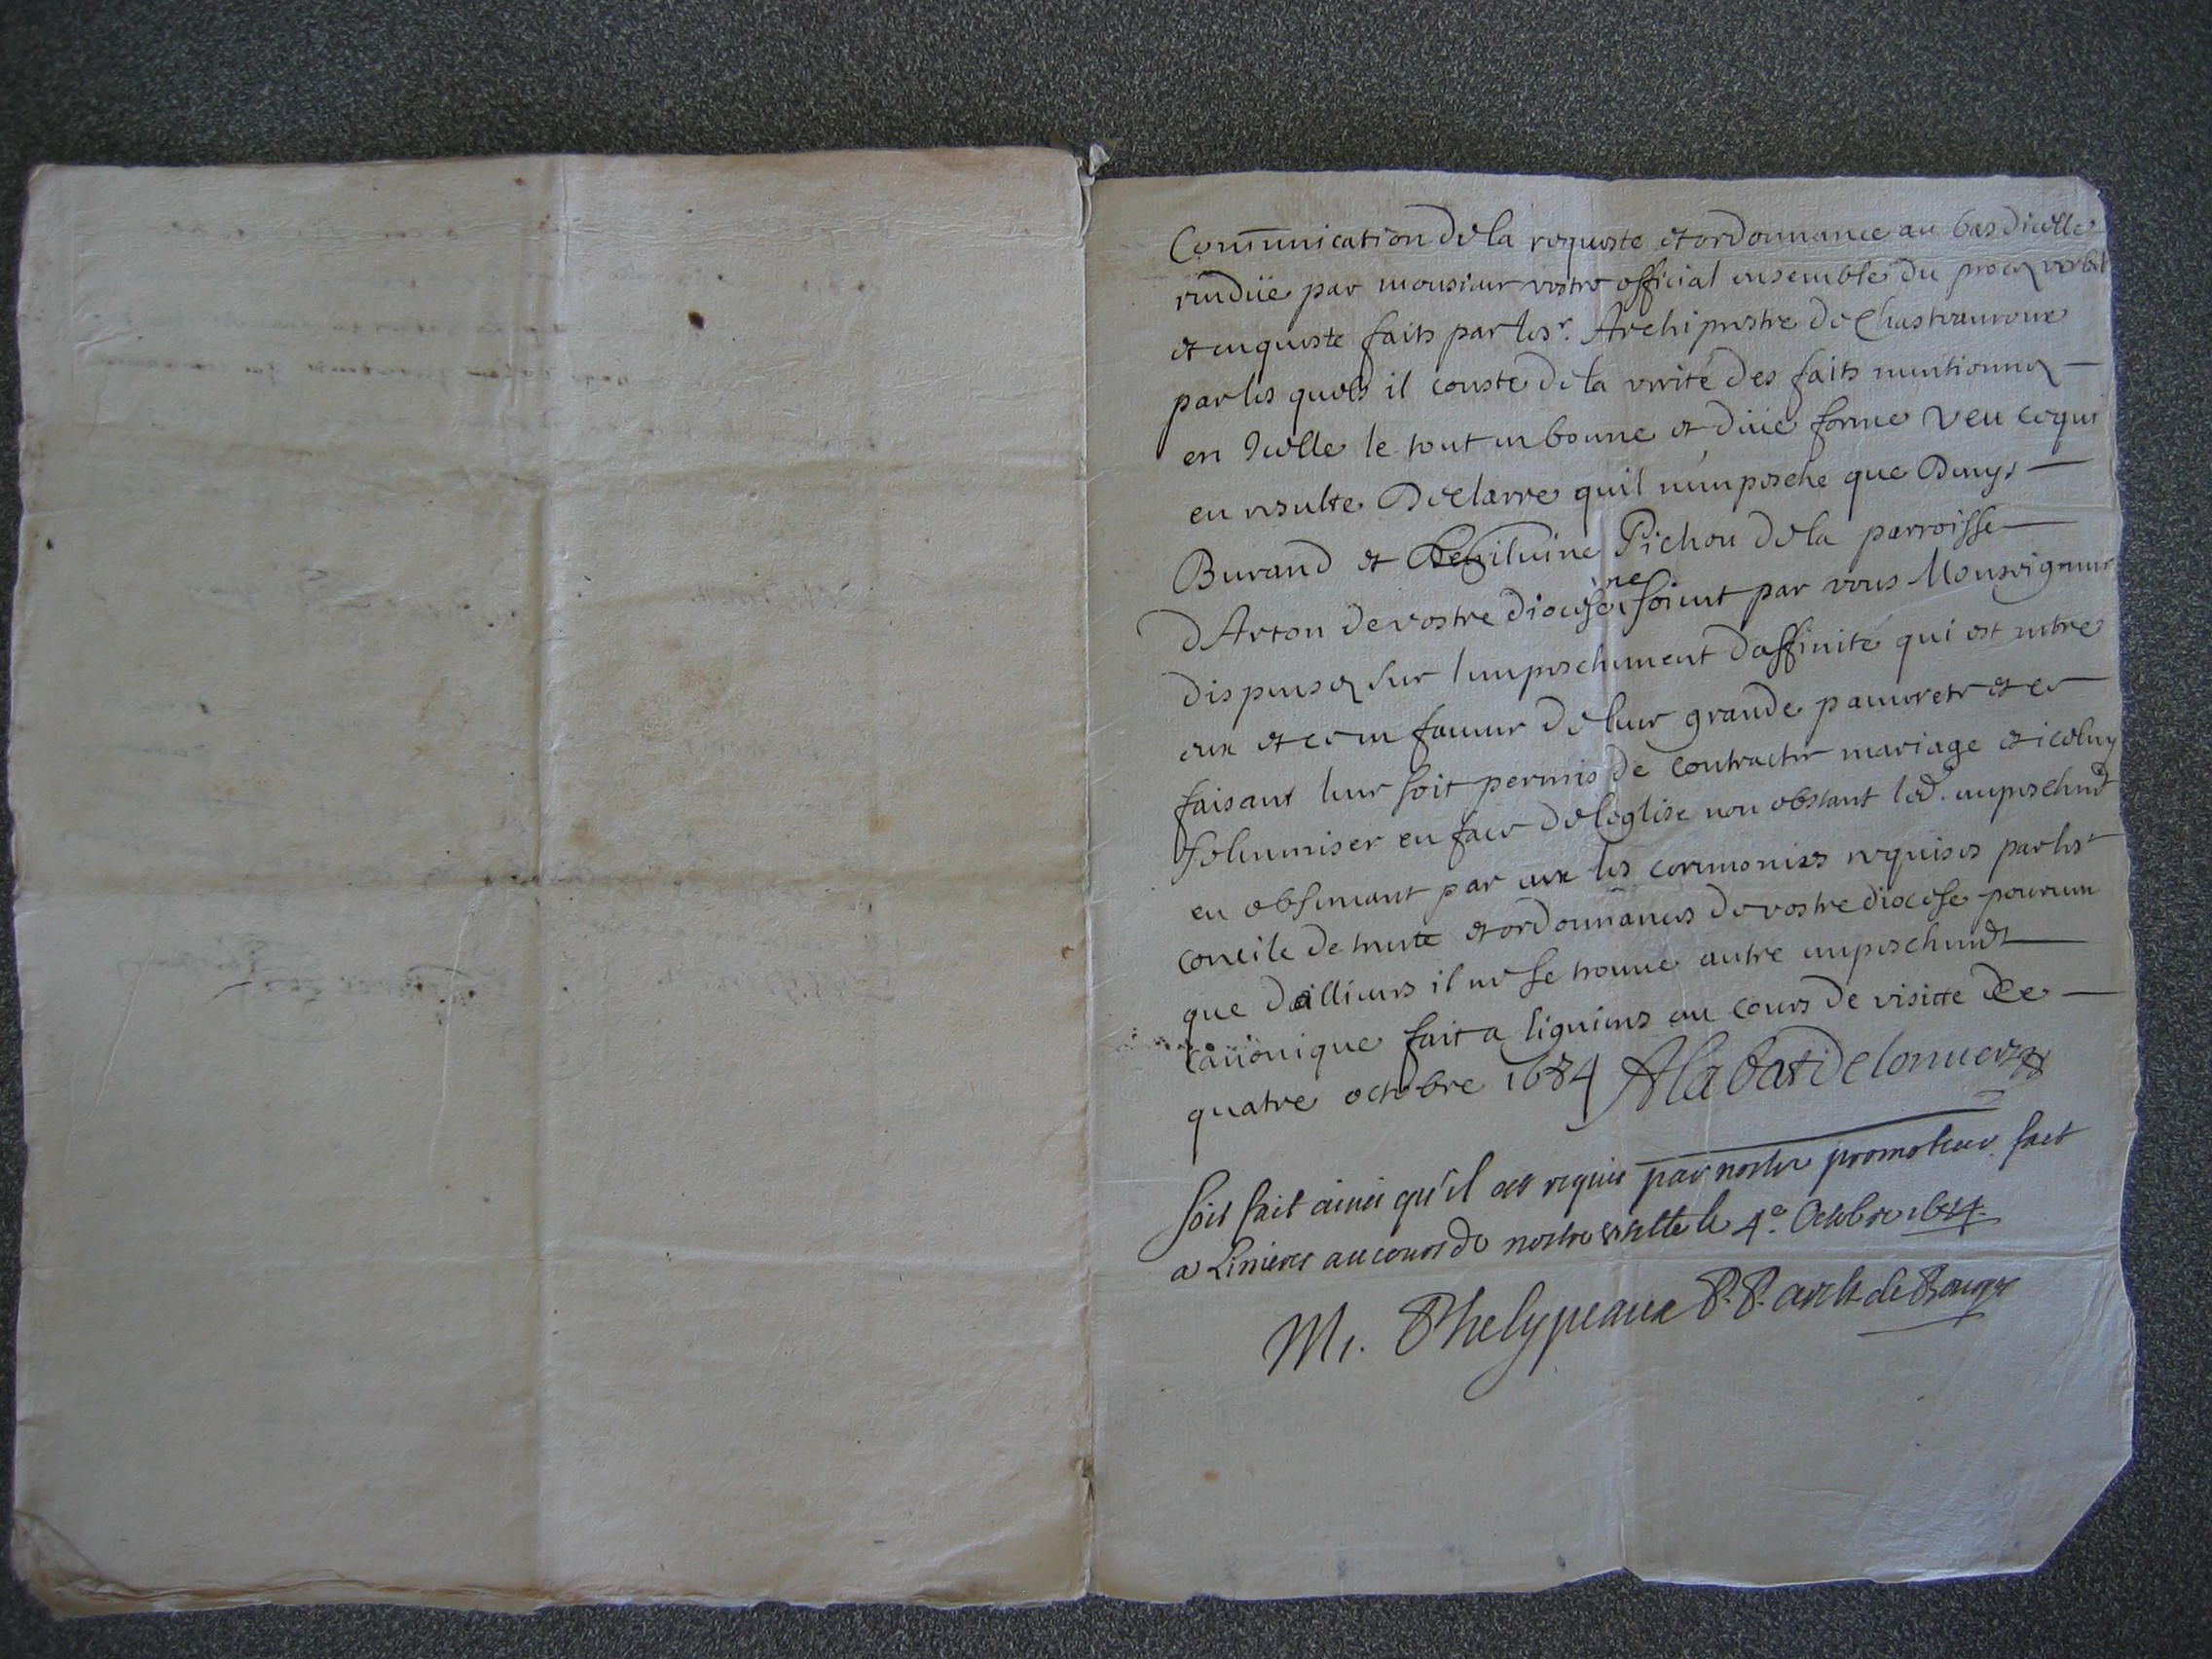 Communication de la requeste et ordonnance au bas dicelle
rendüe par monsieur vostre official ensemble du procez verbal
et enqueste faits par le sr. Archiprestre de Chasteauroux
par les quels il conste de la verité des faits mentionnez
en Icelle le tout en bonne et düe forme veu ce qui
en resulte Declarre quil n'empesche que Denys
Burand et Pichon de la parroisse
d Arton de vostre diocese ne soient par vous Monseigneur
dispensez sur lempeschement daffinité qui est entre
eux et ce en faueur de leur grande pauureté et ce
faisant leur soit permis de contracter mariage et iceluy
solemniser en face de leglise non obstant led. empeschmt
en obseruant par eux les ceremonies requises par le st
concile de trente et ordonnances de vostre diocese pourueu
que dailleurs il ne se trouue autre empeschemt
canonique fait a lignieres au cours de visitte le
quatre octobre 1684 Alabat Delonuerz
soit fait ainsi qu'il est requis par nostre promoteur fait
a Linieres au cours de nostre visitte le 4e. Octobre 1684.
Mi. Phelypeaux P. P. arch. de Bourges